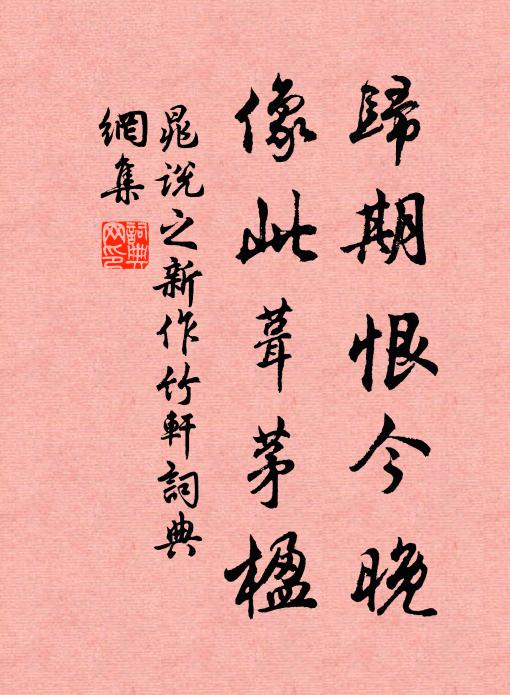 歸期恨今晚
像此葺茅楹
晁說之新作竹軒詞典
網集
詞典網印